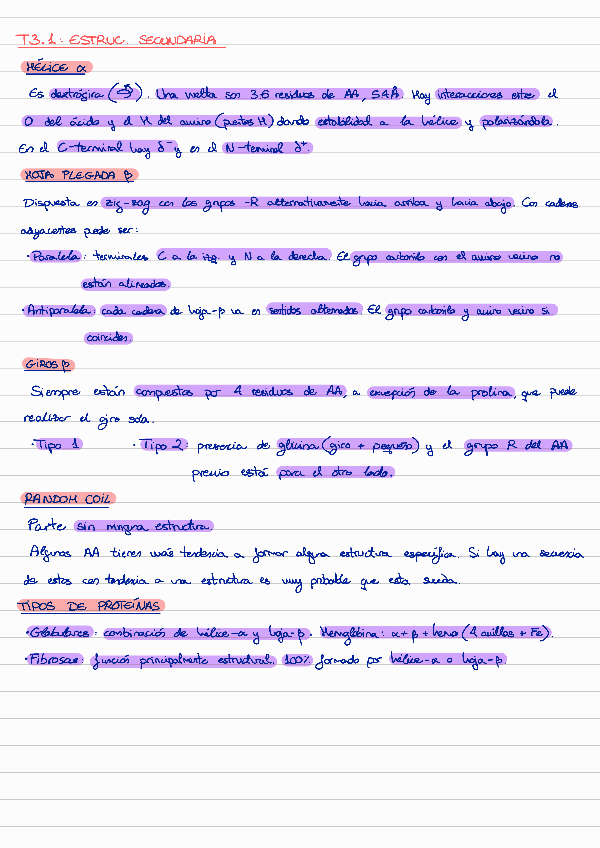 T3.1: ESTRUC. SECUNDARIA
HÉLICE α
Es dextrógira ( ). Una vuelta son 3.6 residuos de AA, 5.4Å. Hay interacciones entre el
O del ácido y el H del amino (puentes H) dando estabilidad a la hélice y polarizándola.
En el C-terminal hay δ⁻ y en el N-terminal δ⁺.
HOJA PLEGADA β
Dispuesta en zig-zag con los grupos -R alternativamente hacia arriba y hacia abajo. Con cadenas
adyacentes puede ser:
·Paralela: terminales C a la izq. y N a la derecha. El grupo carbonilo con el amino vecino no
están alineados.
·Antiparalela: cada cadena de hoja-β va en sentidos alternados. El grupo carbonilo y amino vecino si
coinciden.
GIROS β
Siempre están compuestos por 4 residuos de AA, a excepción de la prolina, que puede
realizar el giro sola.
·Tipo 1 ·Tipo 2: presencia de glicina (giro + pequeño) y el grupo R del AA
previo está para el otro lado.
RANDOM COIL
Parte sin ninguna estructura.
Algunos AA tienen más tendencia a formar alguna estructura específica. Si hay una secuencia
de estos con tendencia a una estructura es muy probable que esta suceda.
TIPOS DE PROTEÍNAS
·Globulares: combinación de hélice-α y hoja-β. Hemoglobina: α + β + hemo (4 anillos + Fe).
·Fibrosas: función principalmente estructural. 100% formado por hélice-α o hoja-β.